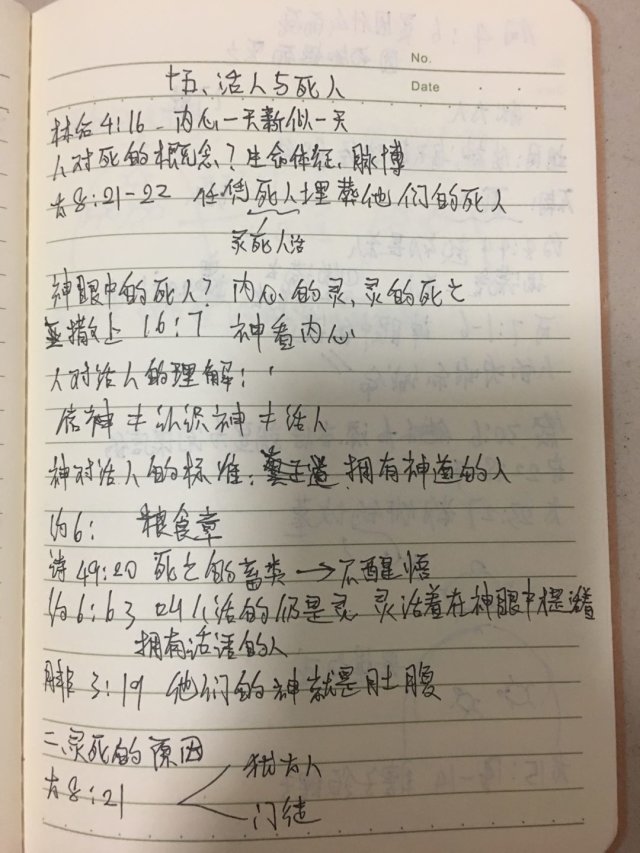 No.
Date
十五、活人与死人
林后4:16 - 内心一天新似一天
人对死的概念？生命体征、脉博
太8:21-22 任凭死人埋葬他们的死人
灵死人活
神眼中的死人？内心的灵、灵的死亡
撒上16:7 神看内心
人对活人的理解：
信神≠认识神≠活人
神对活人的标准：拥有神道的人
约6： 粮食章
诗49:20 死亡的畜类→不醒悟
约6:63 叫人活的仍是灵 灵活着在神眼中是活着
拥有活话的人
腓3:19 他们的神就是肚腹
二、灵死的原因
太8:21
犹太人
门徒